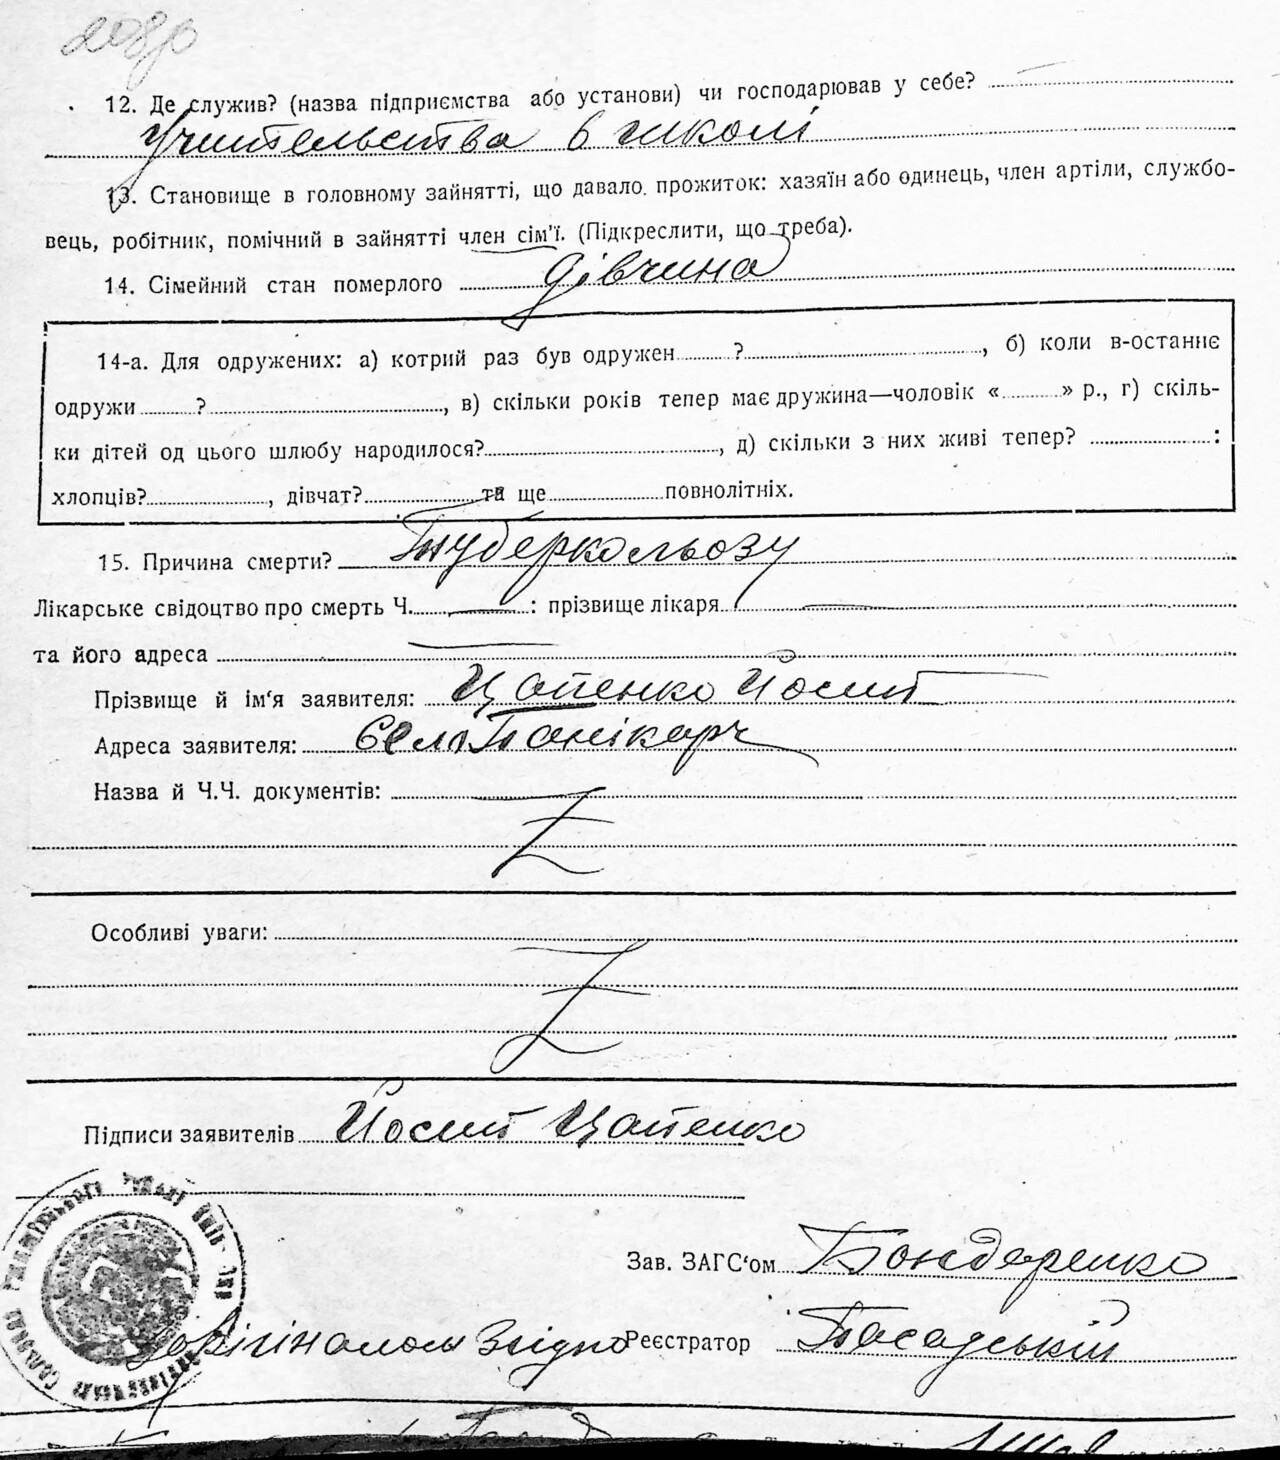 208
12. Де служив? (назва підприємства або установи) чи господарював у себе?
Учительства в школі
13. Становище в головному зайнятті, що давало прожиток: хазяїн або одинець, член артіли, службо-
вець, робітник, помічний в зайнятті член сім'ї. (Підкреслити, що треба).
14. Сімейний стан померлого дівчина
14-а. Для одружених: а) котрий раз був одружен ? , б) коли в-останнє
одружи ? , в) скільки років тепер має дружина—чоловік « » р., г) скіль-
ки дітей од цього шлюбу народилося? , д) скільки з них живі тепер? :
хлопців? , дівчат? та ще повнолітніх.
15. Причина смерти? Туберкольозу
Лікарське свідоцтво про смерть Ч. — : прізвище лікаря —
та його адреса —
Прізвище й ім'я заявителя: Цапенко Йосип
Адреса заявителя: Село
Назва й Ч.Ч. документів:
Особливі уваги:
Підписи заявителів Йосип Цапенко
Зав. ЗАГС'ом Бондаренко
З орігіналом Згідно Реєстратор